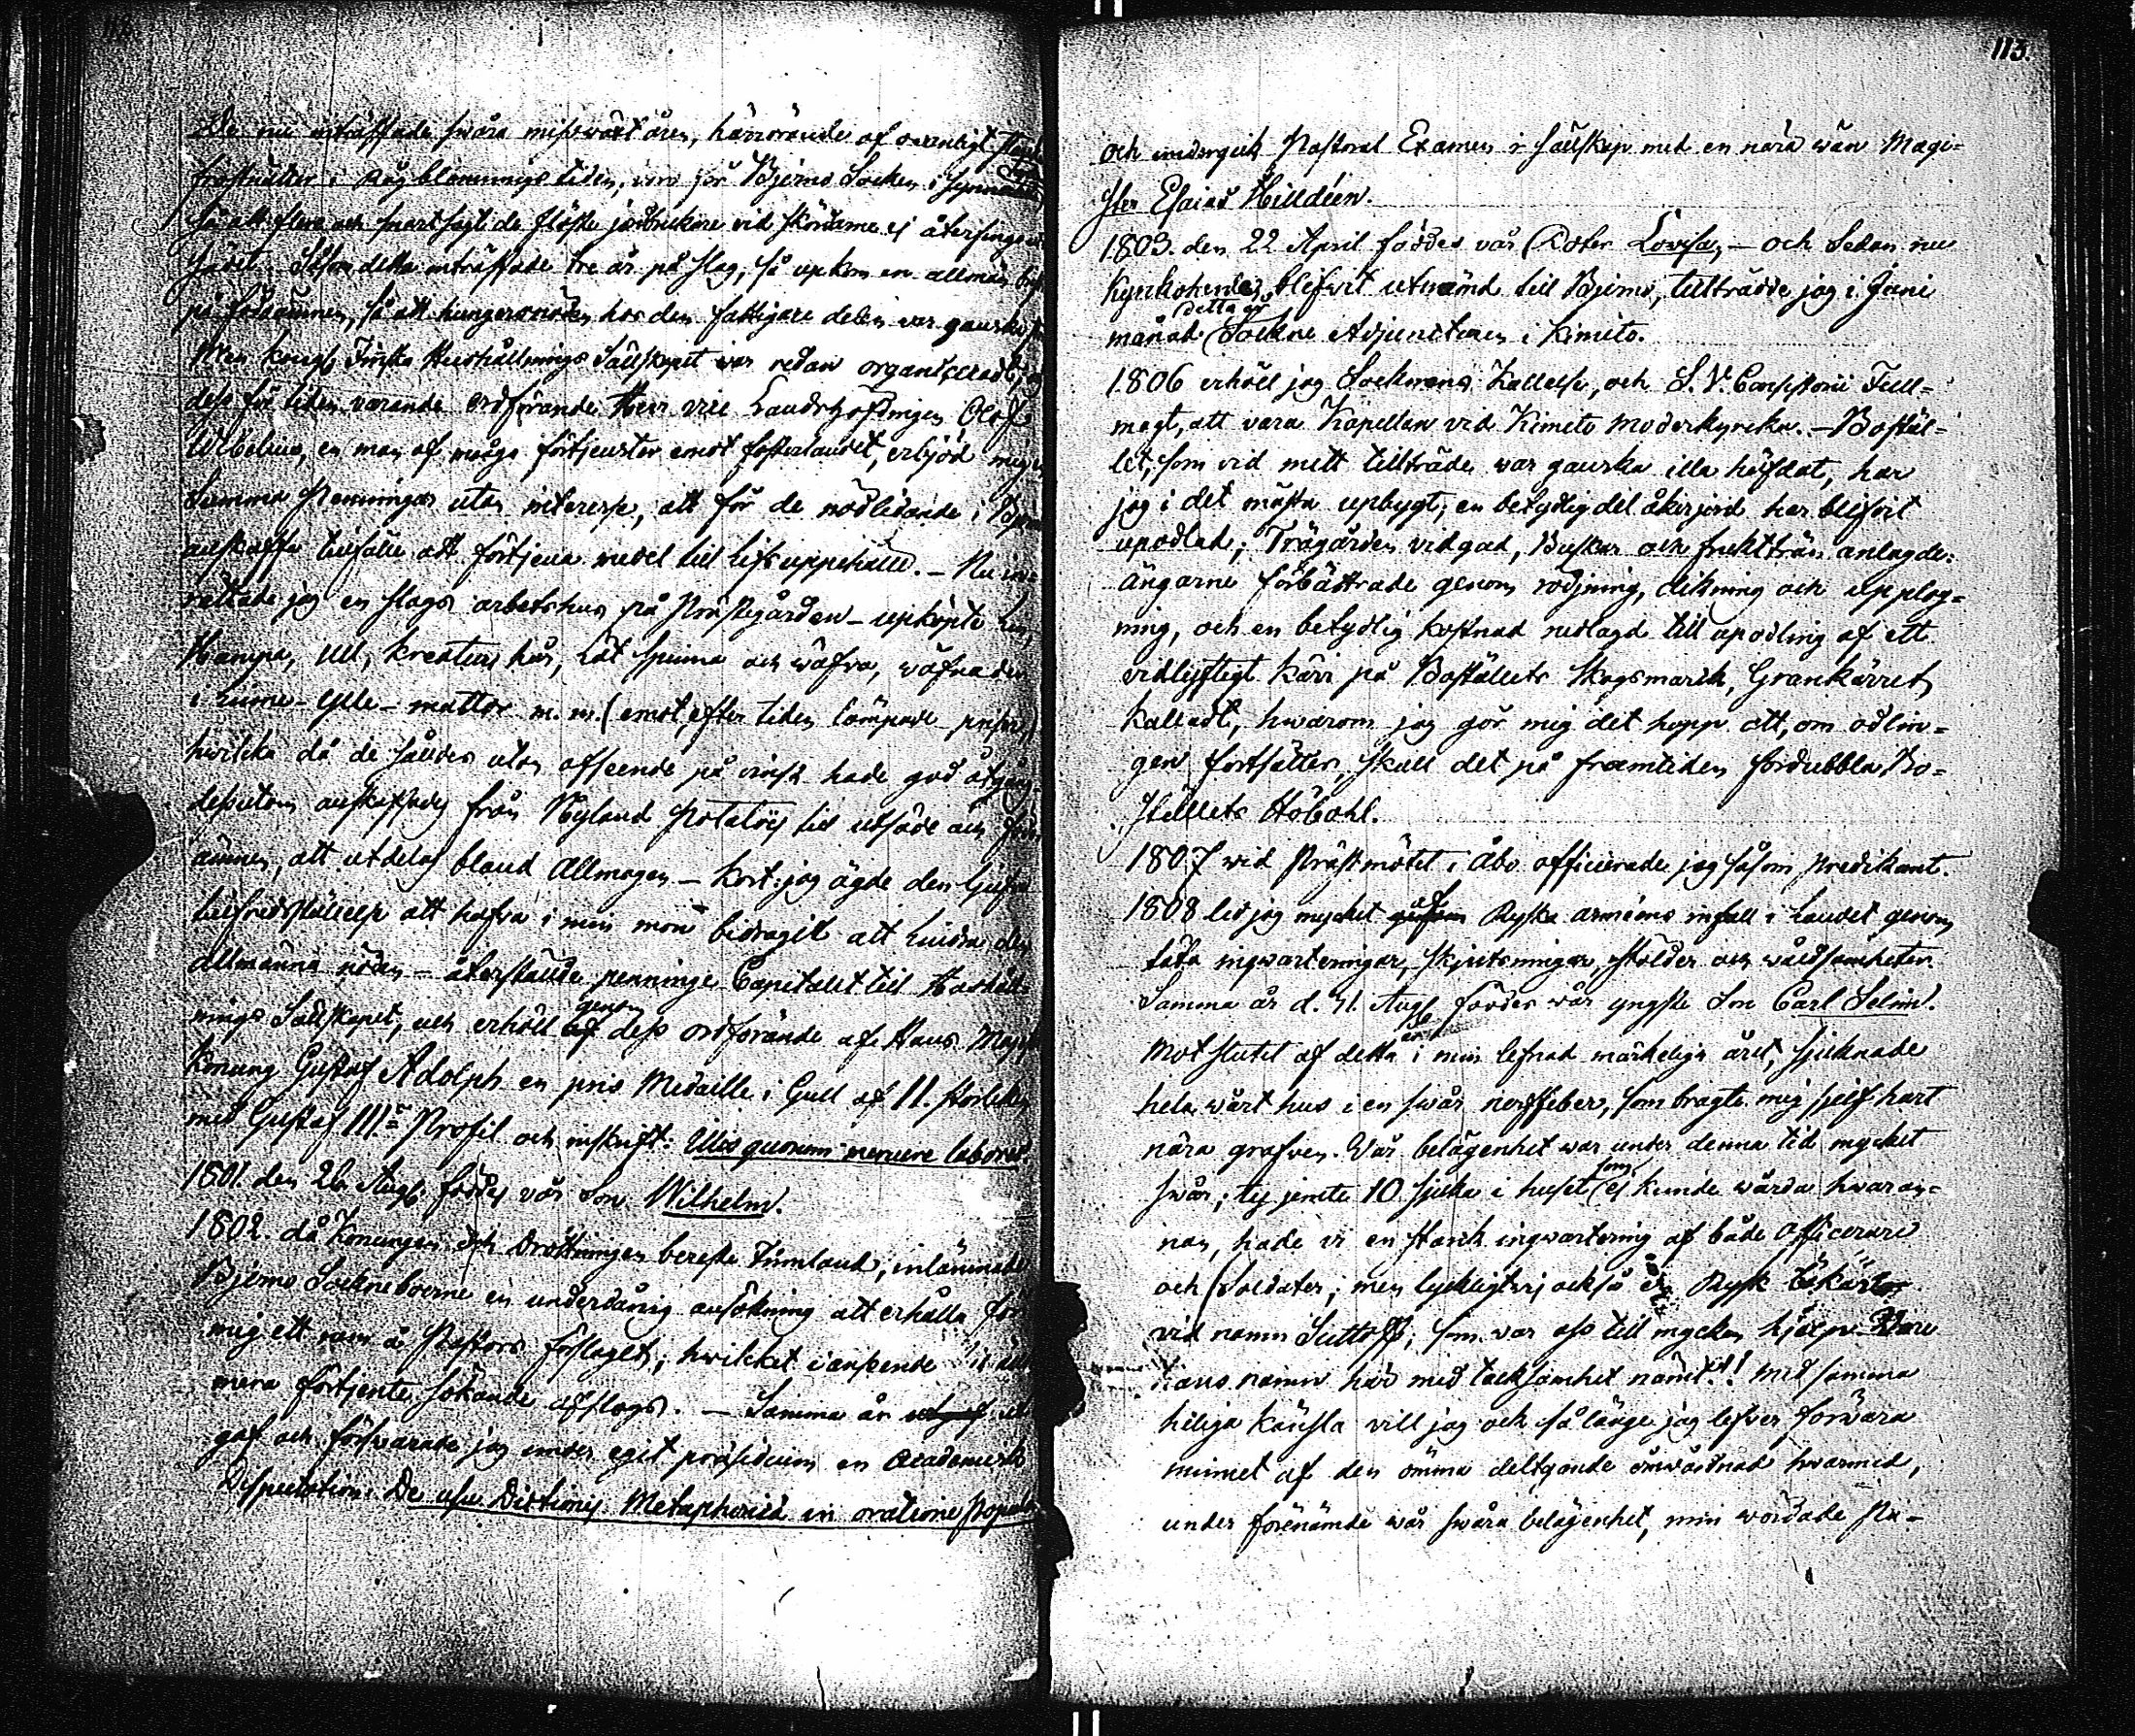 De nu inträffade swåra missväxt åren, härrörande af ovanligt
frostnätter i Rågblomnings tiden, voro för Bjerno Socken i synnerhet
så att flere och snart sagt de fläste jordbrukare vid skördarne ej återfingo
Sådet. Såsom detta inträffade tre år på slag, så upkom en allmän brist
på födoämnen, så att hungersnöden hos den fattigare delen var ganska
Men kongl. Finska Hushållnings Sällskapet war redan organiceradt,
dess för tiden varande Ordförande Herr vice Landshöfdingen Olof
Wibelius, en man af många förtjenster emot fosterlandet, erbjöd mig
Summa Penningar utan interesse, att för de nödlidande i
anskaffa tillfälle att förtjena medel till Lifs uppehälle. – Nu in=
rättade jag en slags arbetshus på Prästgården – upköpte Lin,
Hampa, Ull, kreaturs hår, Lät spinna och wäfva, wäfnader
i Linne- Ylle- mattor m. m. (emot, efter tiden lämpade priser,)
hvilka då de såldes utan afseende på vinst hade god afgång.
dessutom anskaffades från Nyland Potatoes till utsäde och födo
ämnen, att utdelas bland Allmogen – Kort: jag ägde den ljufva
tillfredsställelse att hafva i min mon bidragit att lindra den
allmänna nöden – återstälde penninge Capitalet till Hushåll=
nings Sällskapet, och erhöll af genom dess ordförande af Hans Majst
Konung Gustaf Adolph en pris Medaille i Guld af 11. storleken
med Gustaf III:s Profil och inskrift: Illis quorum meruere labores.
1801. den 26 Aug. föddes vår Son Wilhelm.
1802. då Konungen och Drottningen bereste Finnland, inlämnade
Bjerno Sockneboerne en underdånig ansökning att erhålla för
mig ett rum å Pastors förslaget; hwilket i anseende til
mera förtjente sökande afslogs. – Samma år utgaf ut
gaf och försvarade jag under eget præsidium en Academisk
Disputation: De usu Dictionis Metaphoricæ in oratione

113.
och undergick Pastoral Examen i sällskap med en nära wän Magi=
ster Esaias Hilldéen.
1803. den 22 April föddes vår Doter Lovisa, – och Sedan nu
Kyrkoherde blifvit utnämnd till Bjerno, tillträdde jag i Junii
detta år
månad Sockne Adjuncturen i Kimito.
1806 erhöll jag Socknens Kallelse, och S. V. Consistorii Full=
magt, att vara Kapellan vid Kimito moderkyrka. – Bostäl=
let, som vid mitt tillträde war ganska illa häfdat, har
jag i det mästa upbygt; en betydlig del åkerjord har blifvit
upodlad; Trägården vidgad, Buskar och fruktträn anlagde:
ängarne förbättrade genom rödjning, dikning och upplog=
ning, och en betydlig kostnad nedlagd till upodling af ett
vidlyftigt Kärr på Boställets Skogsmark, Grankärret
kalladt, hwarom jag gör mig det hopp att, om odlin=
gen fortsättes, skall det på framtiden fördubbla Bo=
ställets Höbohl.
1807 wid Prästmötet i Åbo officierade jag såsom predikant.
1808 led jag mycket af Ryska arméens infall i Landet genom
täta inqwarteringar, skjutsningar, stölder och wåldsamheter.
Samma år d. 21. Aug. föddes wår yngste Son Carl Selim.
Mot slutet af detta i min lefnad märkeliga året, sjuknade
hela wårt hus i en swår nerffeber, som bragte mig sjelf hart
nära grafven. Vår belägenhet war under denna tid mycket
swår; ty jemte 10 sjuka i huset som ej kunde wårda hwaran=
nan, hade vi en stark inqwartering af både Officerare
och Soldater; men lyckligtvis också en Rysk Läkare
vid namn Suttoff, som var oss till mycken hjelp. Vare
hans namn här med tacksamhet nämt!! med samma
heliga känsla vill jag och så länge jag lefver förvara
minnet af den ömma deltgande omwårdnad hwarmed,
under förenämde wår swåra belägenhet, min wördade Pa-